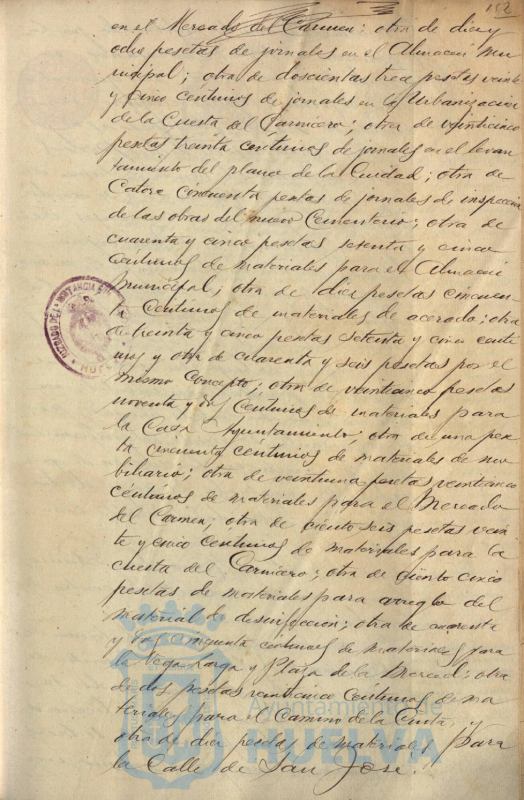 152
en el Mercado del Carmen; otra de diez y
ocho pesetas de jornales en el Almacén Mu-
nicipal; otra de doscientas trece pesetas veinte
y cinco céntimos de jornales en la Urbanización
de la Cuesta del Carnicero; otra de veinticinco
pesetas treinta céntimos de jornales en el levan
tamiento del plano de la Ciudad; otra de
Catorce cincuenta pesetas de jornales de inspección
de las obras del nuevo Cementerio; otra de
cuarenta y cinco pesetas sesenta y cinco
céntimos de materiales para el Almacén
Municipal; otra de diez pesetas cincuen-
ta céntimos de materiales de acerado; otra
de treinta y cinco pesetas setenta y cinco cénti
mos y otra de cuarenta y seis pesetas por el
mismo concepto; otra de veinticinco pesetas
noventa y dos céntimos de materiales para
la Casa Ayuntamiento; otra de una pese
ta cincuenta céntimos de materiales de mo
biliario; otra de veintiuna pesetas veinticinco
céntimos de materiales para el Mercado
del Carmen; otra de ciento seis pesetas vein
te y cinco céntimos de materiales para la
cuesta del Carnicero; otra de ciento cinco
pesetas de materiales para arreglo del
material de desinfección; otra de cuarenta
y dos cincuenta céntimos de materiales para
la Vega Larga y Plaza de la Merced; otra
de dos pesetas veinticinco céntimos de ma
teriales para el Camino de la Cinta, y
otra de diez pesetas de materiales para
la Calle de San José.
JUZGADO DE 1ª INSTANCIA
HUELVA
Ayuntamiento de
HUELVA